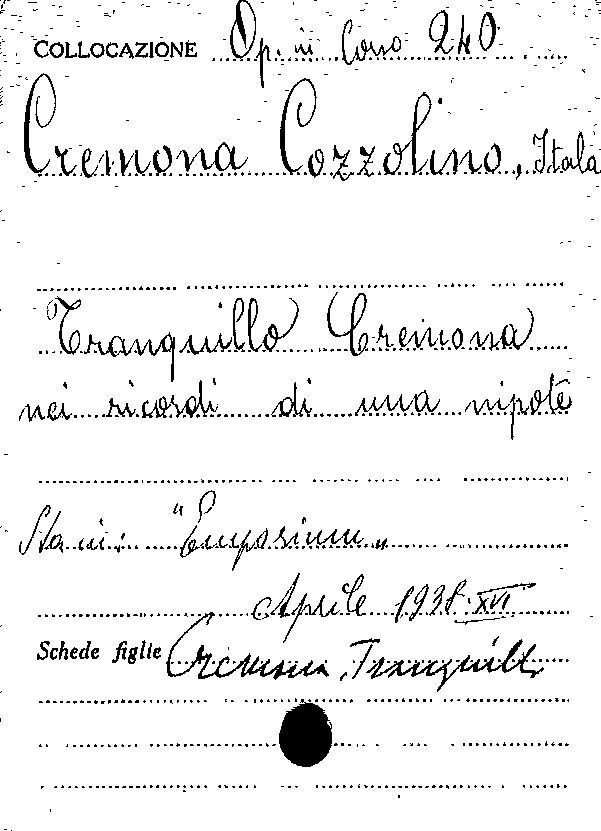 COLLOCAZIONE Op. in Corso 240
Cremona Cozzolino, Itala
Tranquillo Cremona
nei ricordi di una nipote
Sta in: "Emporium„
Aprile 1938-XVI
Schede figlie Cremona, Tranquillo